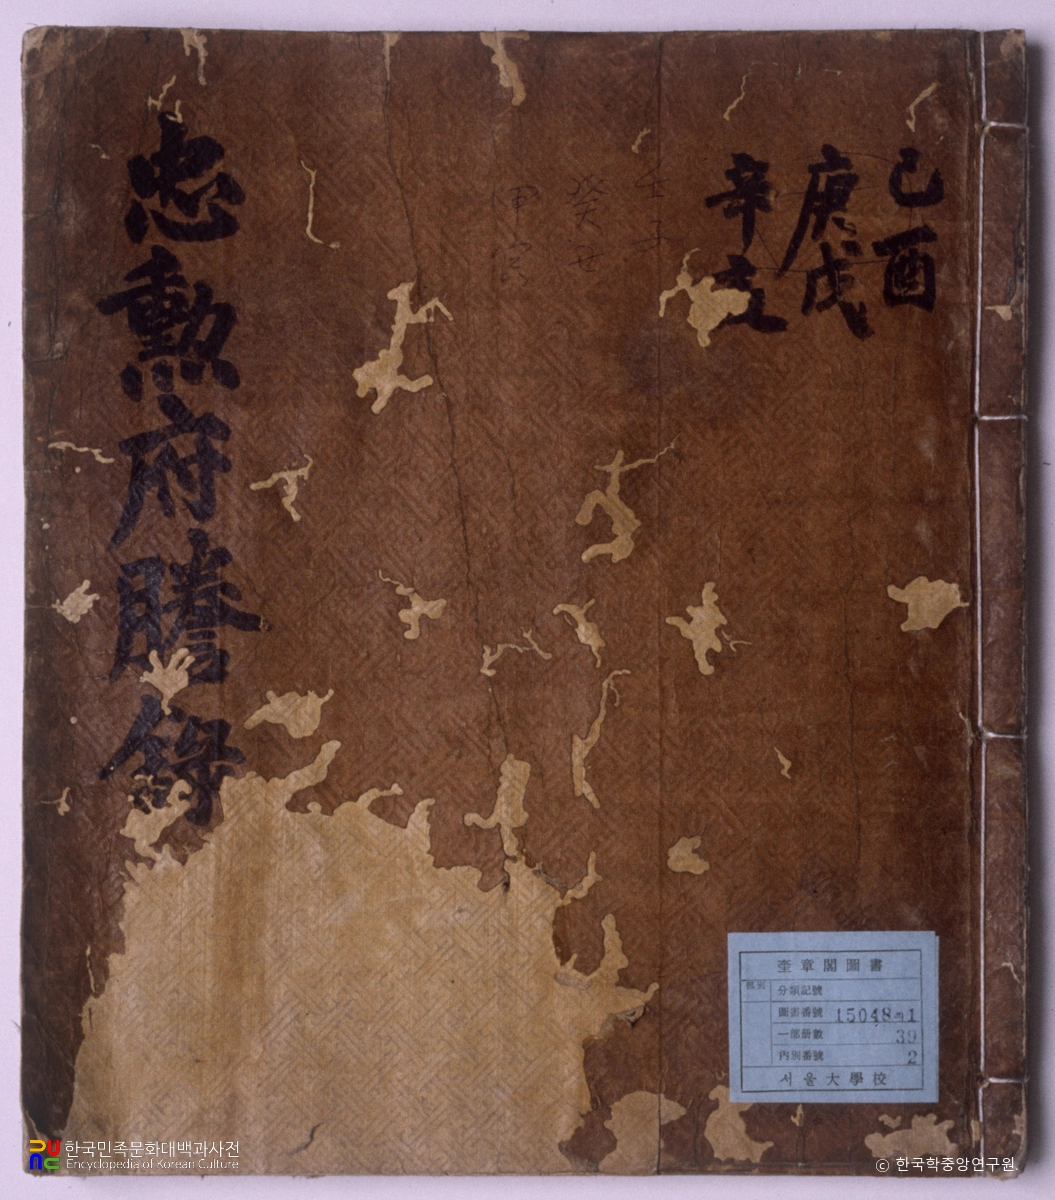 己酉
庚戌
辛亥
壬子
癸丑
甲寅
忠勳府謄錄
奎章閣圖書
分類記號
圖書番號 15048의1
一部冊數 39
內別番號 2
서울大學校
한국민족문화대백과사전
Encyclopedia of Korean Culture
© 한국학중앙연구원